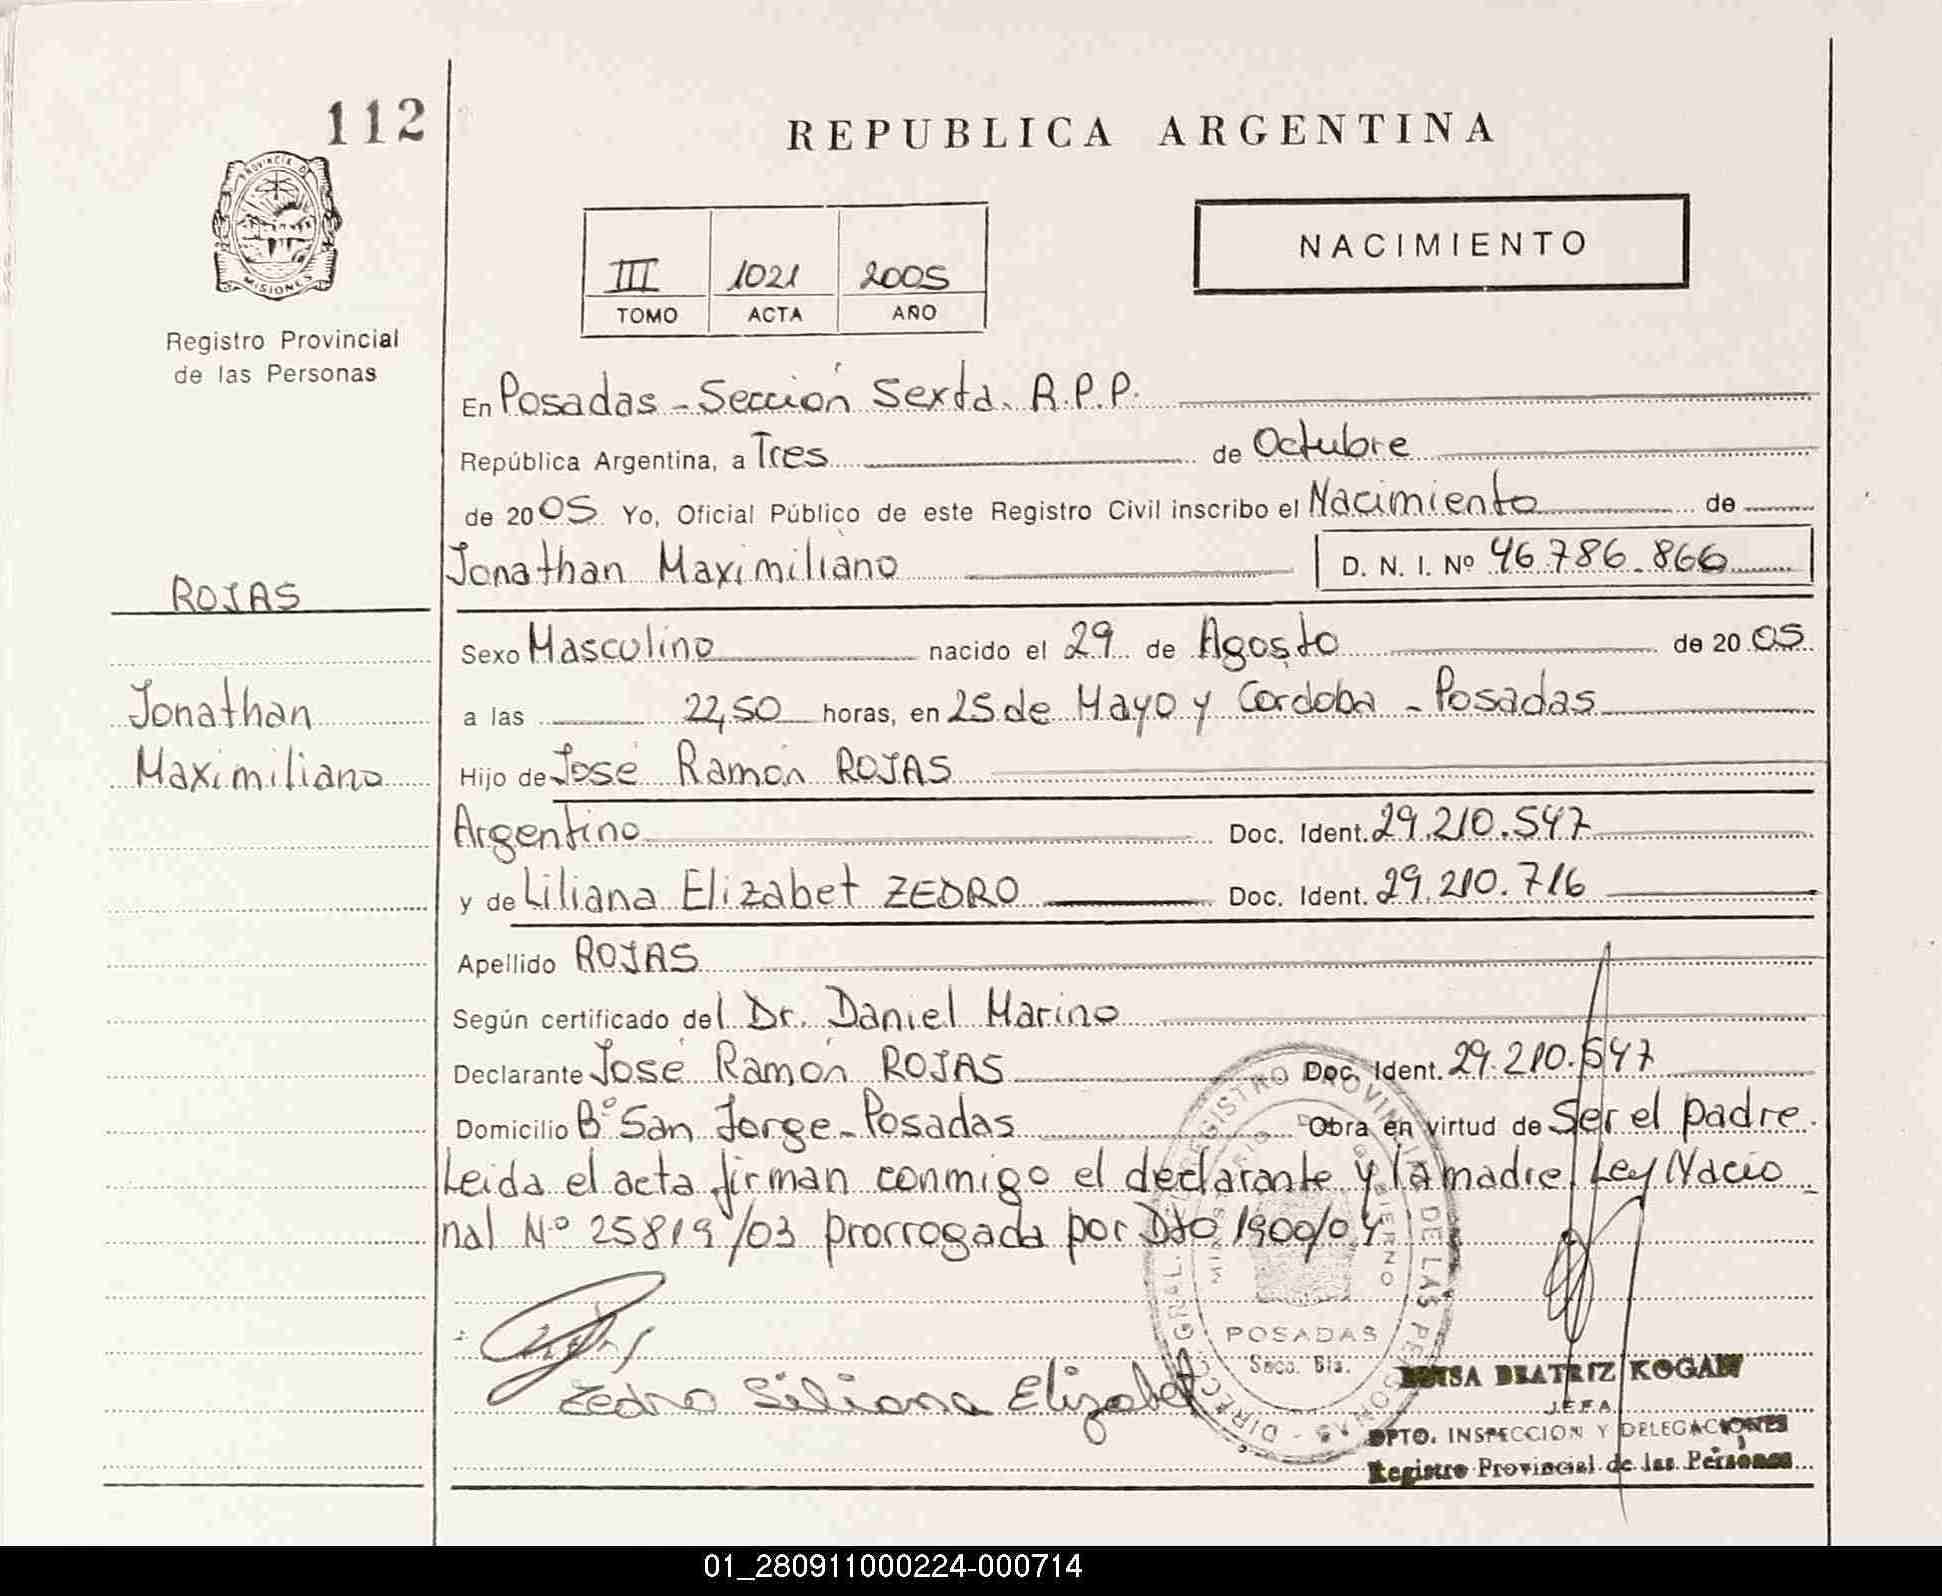 112
REPUBLICA ARGENTINA
PROVINCIA DE
MISIONES
Registro Provincial
de las Personas
NACIMIENTO
III 1021 2005
TOMO ACTA AÑO
En Posadas - Sección Sexta. R.P.P.
República Argentina, a Tres de Octubre
de 2005 Yo, Oficial Público de este Registro Civil inscribo el Nacimiento de
Jonathan Maximiliano D. N. I. Nº 46.786.866
ROJAS
Sexo Masculino nacido el 29 de Agosto de 2005
Jonathan
a las 22,50 horas, en 25 de Mayo y Cordoba - Posadas
Maximiliano
Hijo de José Ramón ROJAS
Argentino Doc. Ident. 29.210.547
y de Liliana Elizabet ZEDRO Doc. Ident. 29.210.716
Apellido ROJAS
Según certificado del Dr. Daniel Marino
Declarante José Ramón ROJAS Doc. Ident. 29.210.547
Domicilio Bº San Jorge - Posadas Obra en virtud de Ser el padre.
Leida el acta firman conmigo el declarante y la madre Ley Nacio_
nal Nº 25819/03 prorrogada por Dto 1900/04
Zedro Liliana Elizabet
REGISTRO PROVINCIAL DE LAS PERSONAS
POSADAS
Secc. 6ta.
BEATRIZ KOGAN
JEFA
DPTO. INSPECCION Y DELEGACIONES
Registro Provincial de las Personas
01_280911000224-000714